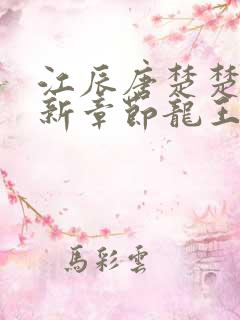 江辰唐楚楚
新章節龍王
馬彩雲